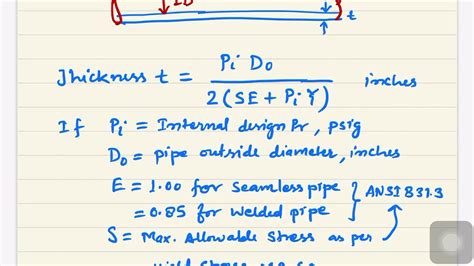 ID
t
Thickness t = Pi Do / 2(SE + Pi Y) inches
If Pi = Internal design Pr, psig
Do = pipe outside diameter, inches
E = 1.00 for Seamless pipe } ANSI B31.3
= 0.85 for Welded pipe
S = Max. Allowable Stress as per